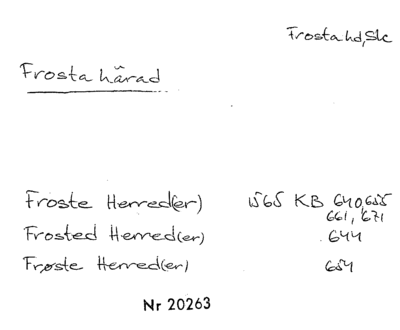 Frosta hd, Sk
Frosta härad
Froste Herred(er) 1565 KB 640, 655
661, 671
Frosted Herred(er) 644
Frøste Herred(er) 654
Nr 20263